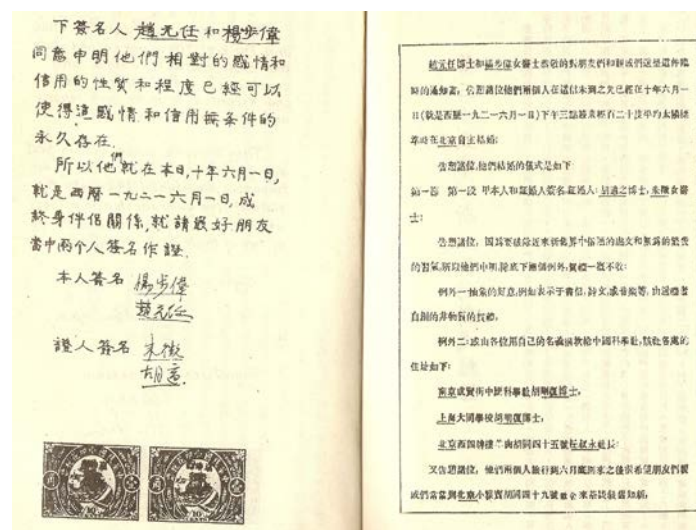 下簽名人 趙元任和楊步偉
同意申明他們相對的感情和
信用的性質和程度已經可以
使得這感情和信用無条件的
永久存在.
所以他們就在本日,十年六月一日,
就是西曆一九二一六月一日,成
終身伴侶關係,就請最好朋友
當中兩个人簽名作證.
本人簽名 楊步偉
趙元任
證人簽名 朱徵
胡適
10 10
趙元任博士和楊步偉女醫士恭敬的對朋友們和親戚們送呈這件臨
時的通知書,告愬諸位他們兩個人在這信未到之先已經在十年六月一
日(就是西歷一九二一六月一日)下午三點鐘東經百二十度平均太陽標
準時在北京自主結婚;
告愬諸位,他們結婚的儀式是如下:
第一節 第一段 甲本人和證婚人簽名,證婚人:胡適之博士,朱徵女醫
士;
告愬諸位,因爲要破除近來新舊界中俗陋的虛文和無爲的繁費
的習氣,所以他們申明,除底下兩個例外,賀禮一概不收:
例外一:抽象的好意,例如表示于書信,詩文,或音樂等,由送禮者
自創的非物質的賀禮,
例外二:或由各位用自己的名義捐欵給中國科學社,該社各處的
住址如下:
南京成賢街中國科學社胡剛復博士,
上海大同學校胡明復博士,
北京西四牌樓羊肉胡同四十五號任叔永社長;
又告愬諸位,他們兩個人旅行到六月底回來之後很希望朋友們親
戚們常常到北京小雅寶胡同四十九號敝舍來茶談叙舊知新;